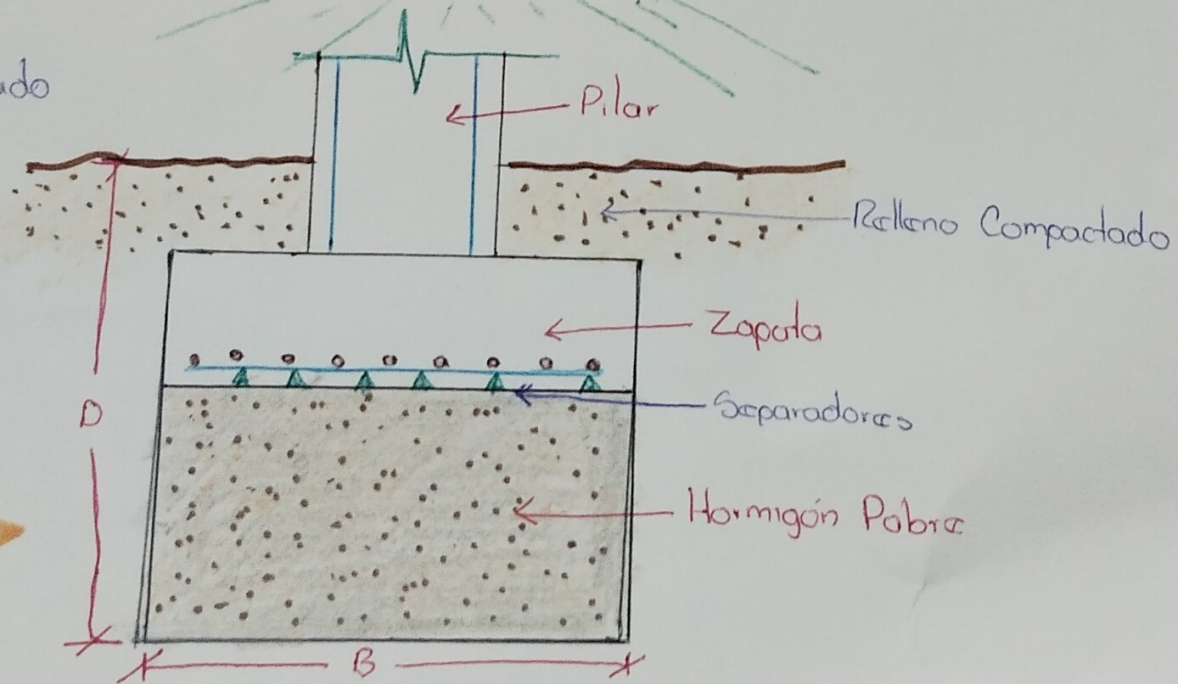 Pilar
Relleno Compactado
Zapata
Separadores
D
Hormigón Pobre
B